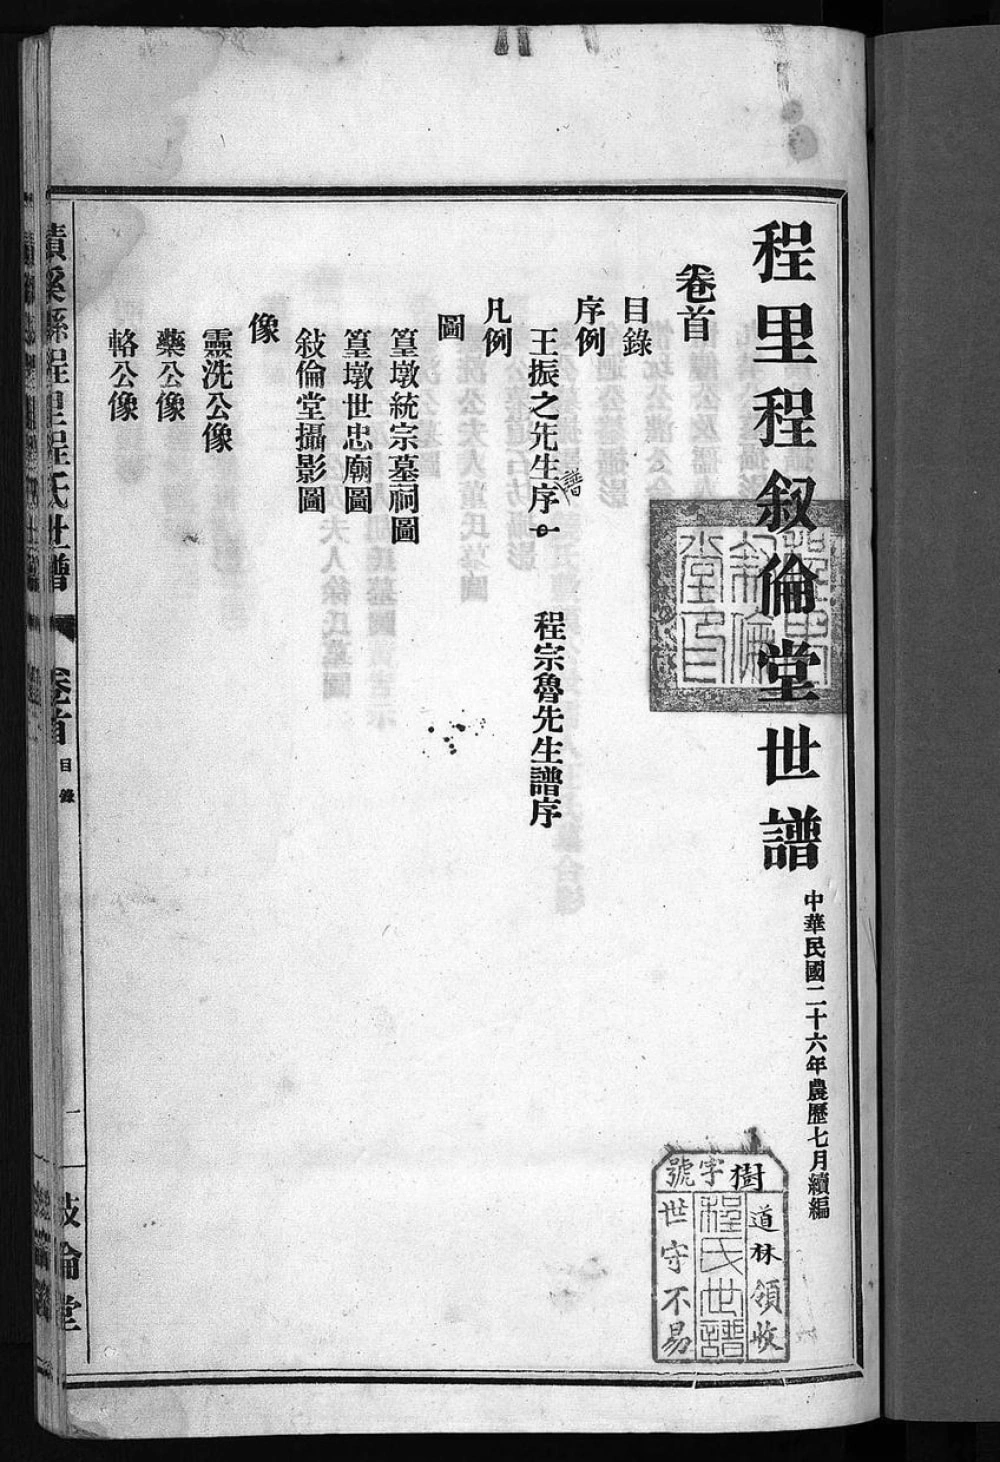 程里程叙倫堂世譜
中華民國二十六年農歷七月續編
程里叙倫堂印
樹字號
道林領收
程氏世譜
世守不易
卷首
目錄
序例
王振之先生譜序
程宗魯先生譜序
凡例
圖
篁墩統宗墓祠圖
篁墩世忠廟圖
敍倫堂攝影圖
像
靈洗公像
藥公像
輅公像
績溪縣程里程氏世譜
卷首
目錄
一
敍倫堂